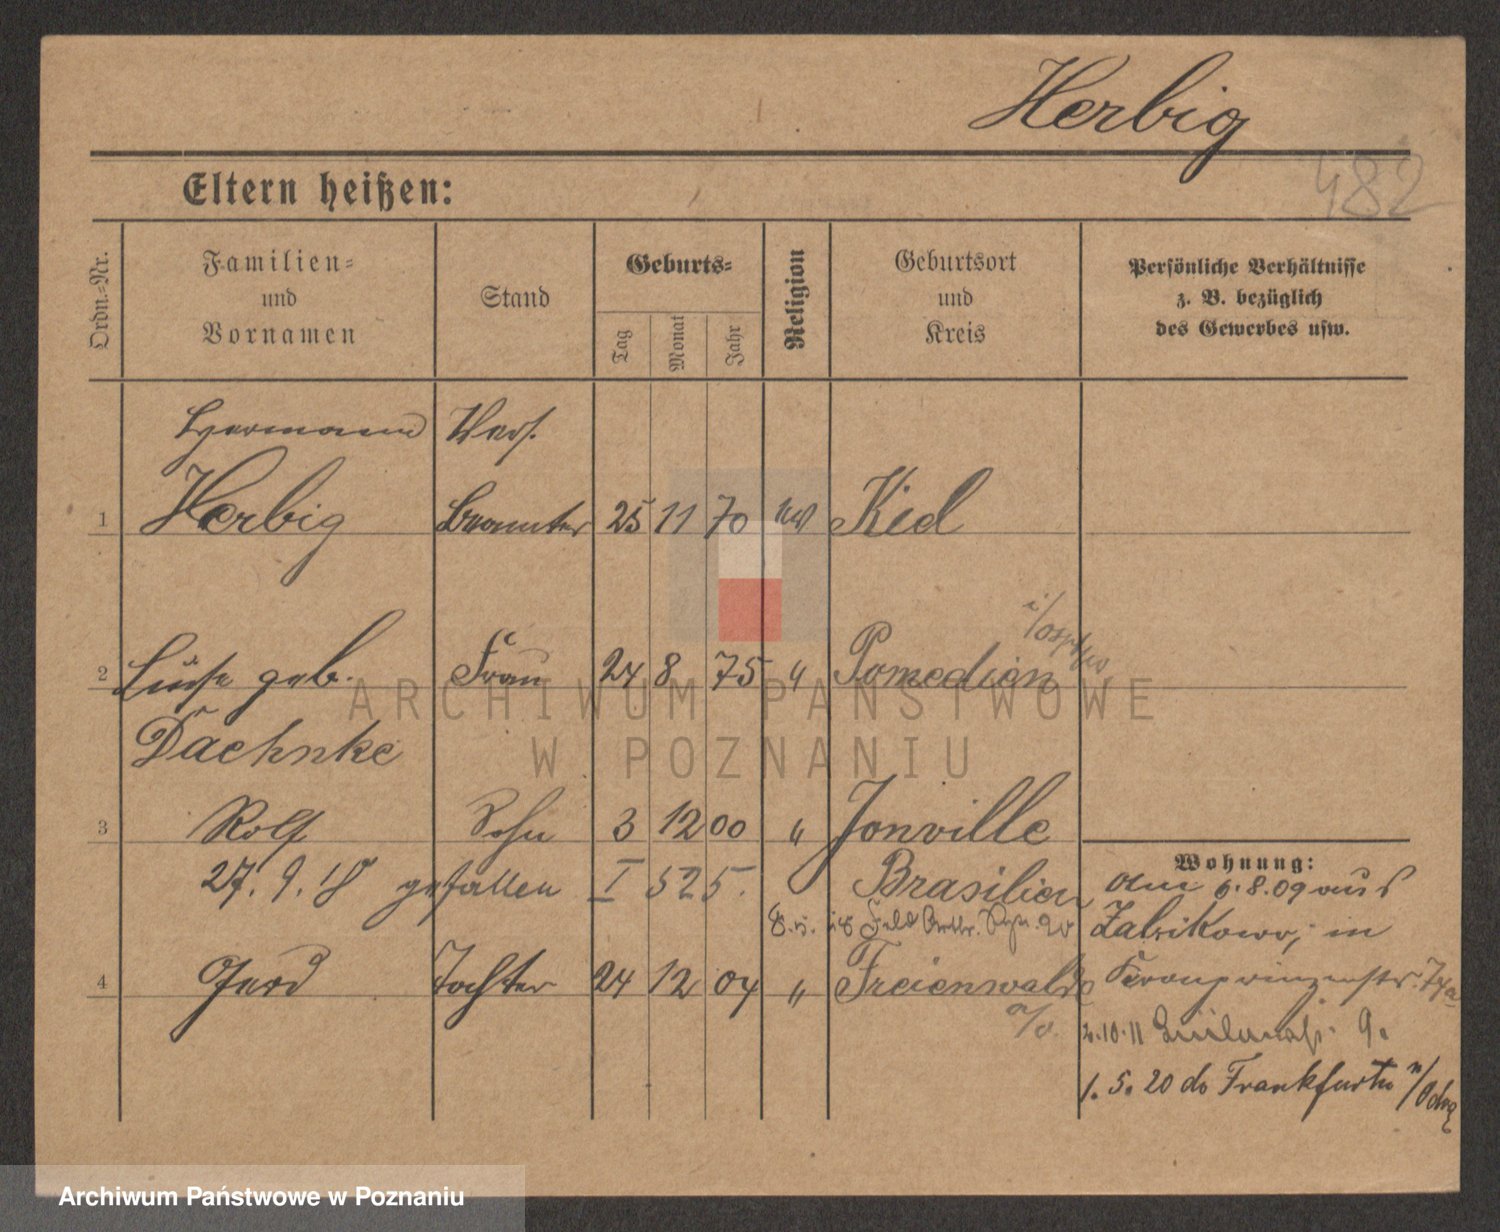 Herbig
482
Eltern heißen:
Ordn.=Nr.
Familien=
und
Vornamen
Stand
Geburts=
Tag
Monat
Jahr
Religion
Geburtsort
und
Kreis
Persönliche Verhältnisse
z. B. bezüglich
des Gewerbes usw.
Hermann Vers.
1 Herbig Beamter 25 11 70 Kiel
2 Luise geb. Frau 24 8 75 " Pomedien i/Ostptr
Daehnke
3 Rolf Sohn 3 12 00 " Jonville
27. 9. 18 gefallen I 525. Brasilien
Wohnung:
am 6.8.09 aus
Zabikowo, in
4 Gerd Tochter 24 12 04 " Freienwalde
a/O.
Kronprinzenstr. 74a
2.10.11 9.
1. 5. 20 do Frankfurt a/Oder
ARCHIWUM PAŃSTWOWE
W POZNANIU
Archiwum Państwowe w Poznaniu